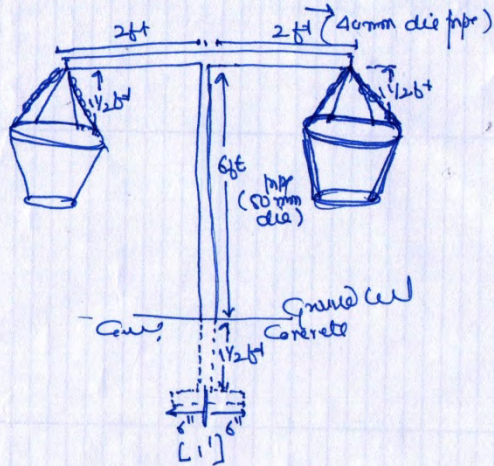 2ft 2ft 40mm die pipe)
1½ft 1½ft
6ft
pipe
(50 mm
die)
Ground
Concrete
1½ft
6" 6"
[1']